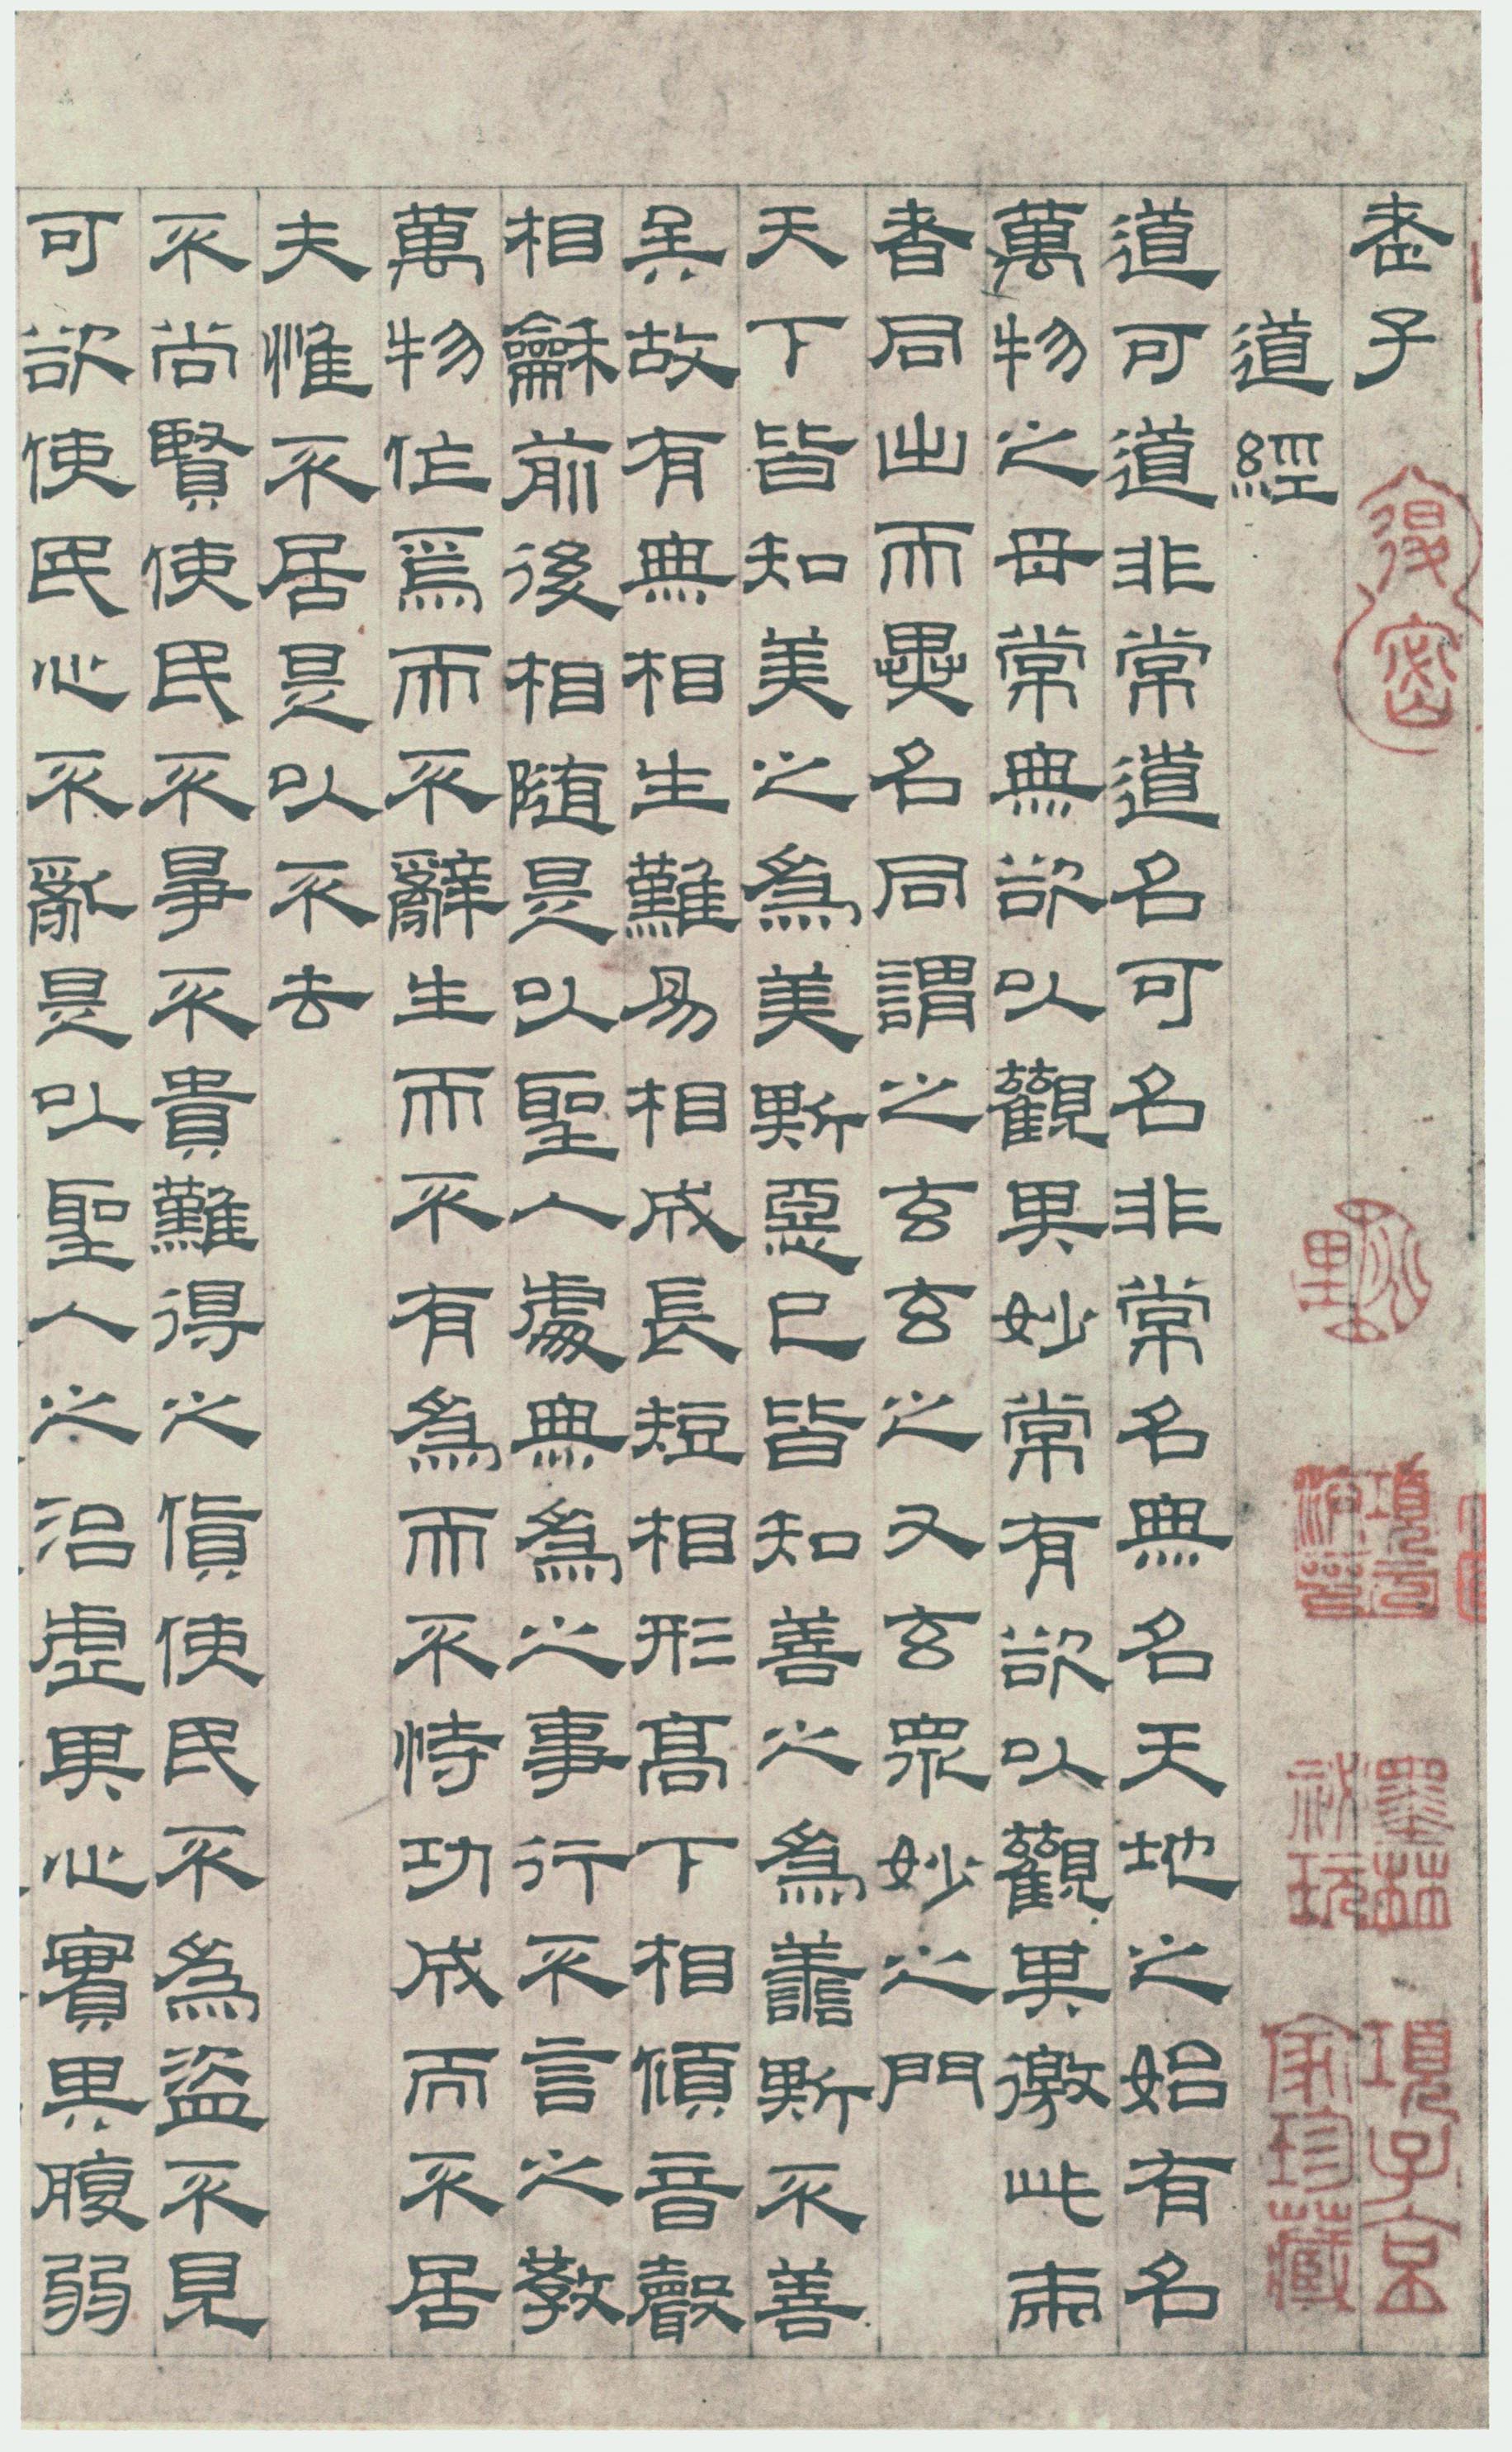 老子
道經
道可道非常道名可名非常名無名天地之始有名
萬物之母常無欲以觀其妙常有欲以觀其徼此兩
者同出而異名同謂之玄玄之又玄眾妙之門
天下皆知美之為美斯惡已皆知善之為善斯不善
矣故有無相生難易相成長短相形高下相傾音聲
相龢前後相隨是以聖人處無為之事行不言之教
萬物作焉而不辭生而不有為而不恃功成而不居
夫惟不居是以不去
不尚賢使民不爭不貴難得之貨使民不為盜不見
可欲使民心不亂是以聖人之治虛其心實其腹弱
退密
項元汴印
墨林祕玩
項子京家珍藏